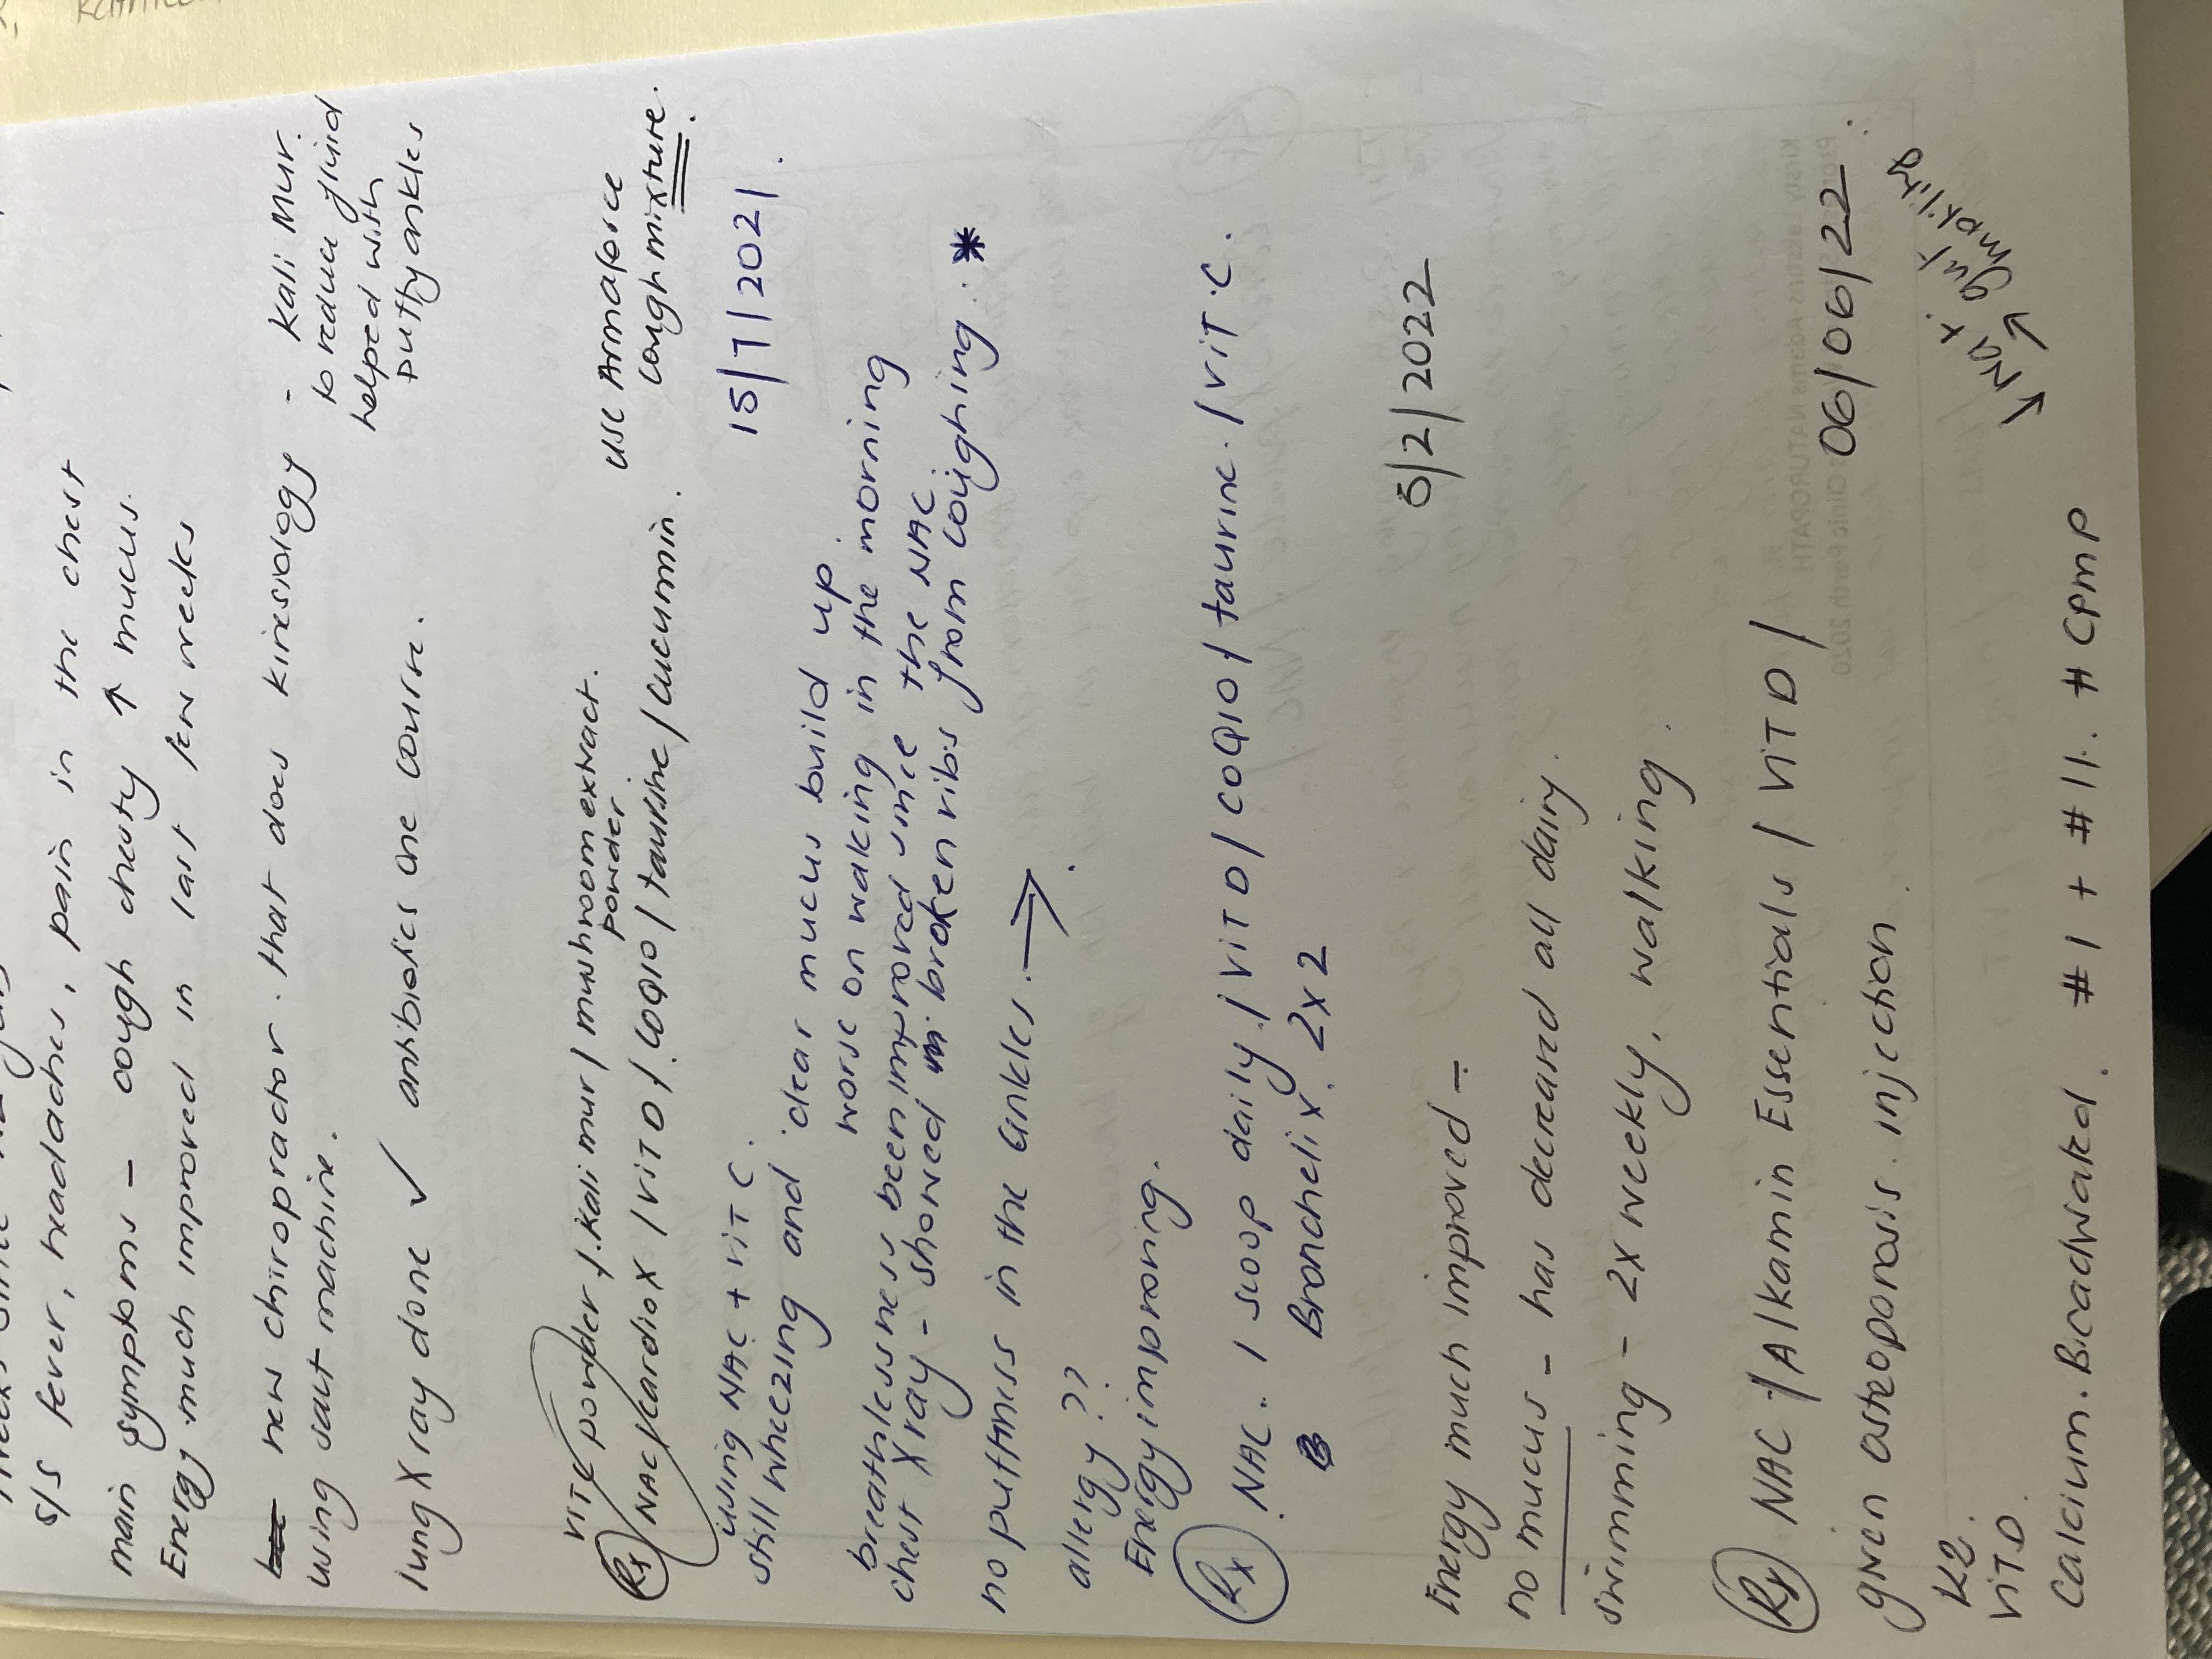 s/s fever, headaches, pain in the chest
main symptoms - cough chesty ↑ mucus.
Energy much improved in last few weeks
new chiropractor. that does kinesiology - Kali Mur.
to reduce fluid
helped with
puffy ankles
using salt machine.
lung X ray done ✓ antibiotics one course.
use Armaforce
cough mixture.
Vit C powder /. Kali mur / mushroom extract.
powder
Rx NAC / Cardiox / VIT D /. COQ10 / taurine / cucumin.
15/7/2021.
using NAC + VIT C.
still wheezing and clear mucus build up.
worse on waking in the morning
breathlessness been improved since the NAC.
chest X ray - showed broken ribs from coughing. *
no puffiness in the ankles. →.
allergy ??
Energy improving.
Rx NAC. 1 scoop daily. / VIT D / COQ10 / taurine. / VIT C.
Bronchelix. 2x2
5/2/2022
Energy much improved -
no mucus - has decreased all dairy.
swimming - 2x weekly, walking.
Rx NAC / Alkamin Essentials / VIT D /
06/06/22
given osteoporosis. injection.
K2.
VIT D.
Calcium. Bioadvated. #1 + #11. # CPMP